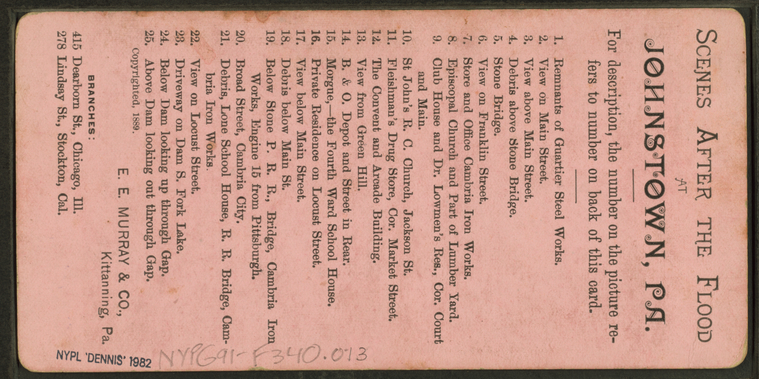 SCENES AFTER THE FLOOD
AT
JOHNSTOWN, PA.
For description, the number on the picture re-
fers to number on back of this card.
1. Remnants of Guartier Steel Works.
2. View on Main Street.
3. View above Main Street.
4. Debris above Stone Bridge.
5. Stone Bridge.
6. View on Franklin Street.
7. Store and Office Cambria Iron Works.
8. Episcopal Church and Part of Lumber Yard.
9. Club House and Dr. Lowmen's Res., Cor. Court
and Main.
10. St John's R. C. Church, Jackson St.
11. Fleishman's Drug Store, Cor. Market Street.
12. The Convent and Arcade Building.
13. View from Green Hill.
14. B. & O. Depot and Street in Rear.
15. Morgue,—the Fourth Ward School House.
16. Private Residence on Locust Street.
17. View below Main Street.
18. Debris below Main St.
19. Below Stone P. R. R., Bridge, Cambria Iron
Works, Engine 15 from Pittsburgh.
20. Broad Street, Cambria City.
21. Debris, Lone School House, R. R. Bridge, Cam-
bria Iron Works.
22. View on Locust Street.
23. Driveway on Dam S. Fork Lake.
24. Below Dam looking up through Gap.
25. Above Dam looking out through Gap.
Copyrighted, 1889.
E. E. MURRAY & CO.,
Kittanning, Pa.
BRANCHES:
415 Dearborn St., Chicago, Ill.
278 Lindsay St., Stockton, Cal.
NYPL 'DENNIS' 1982
NYPG91-F340.013